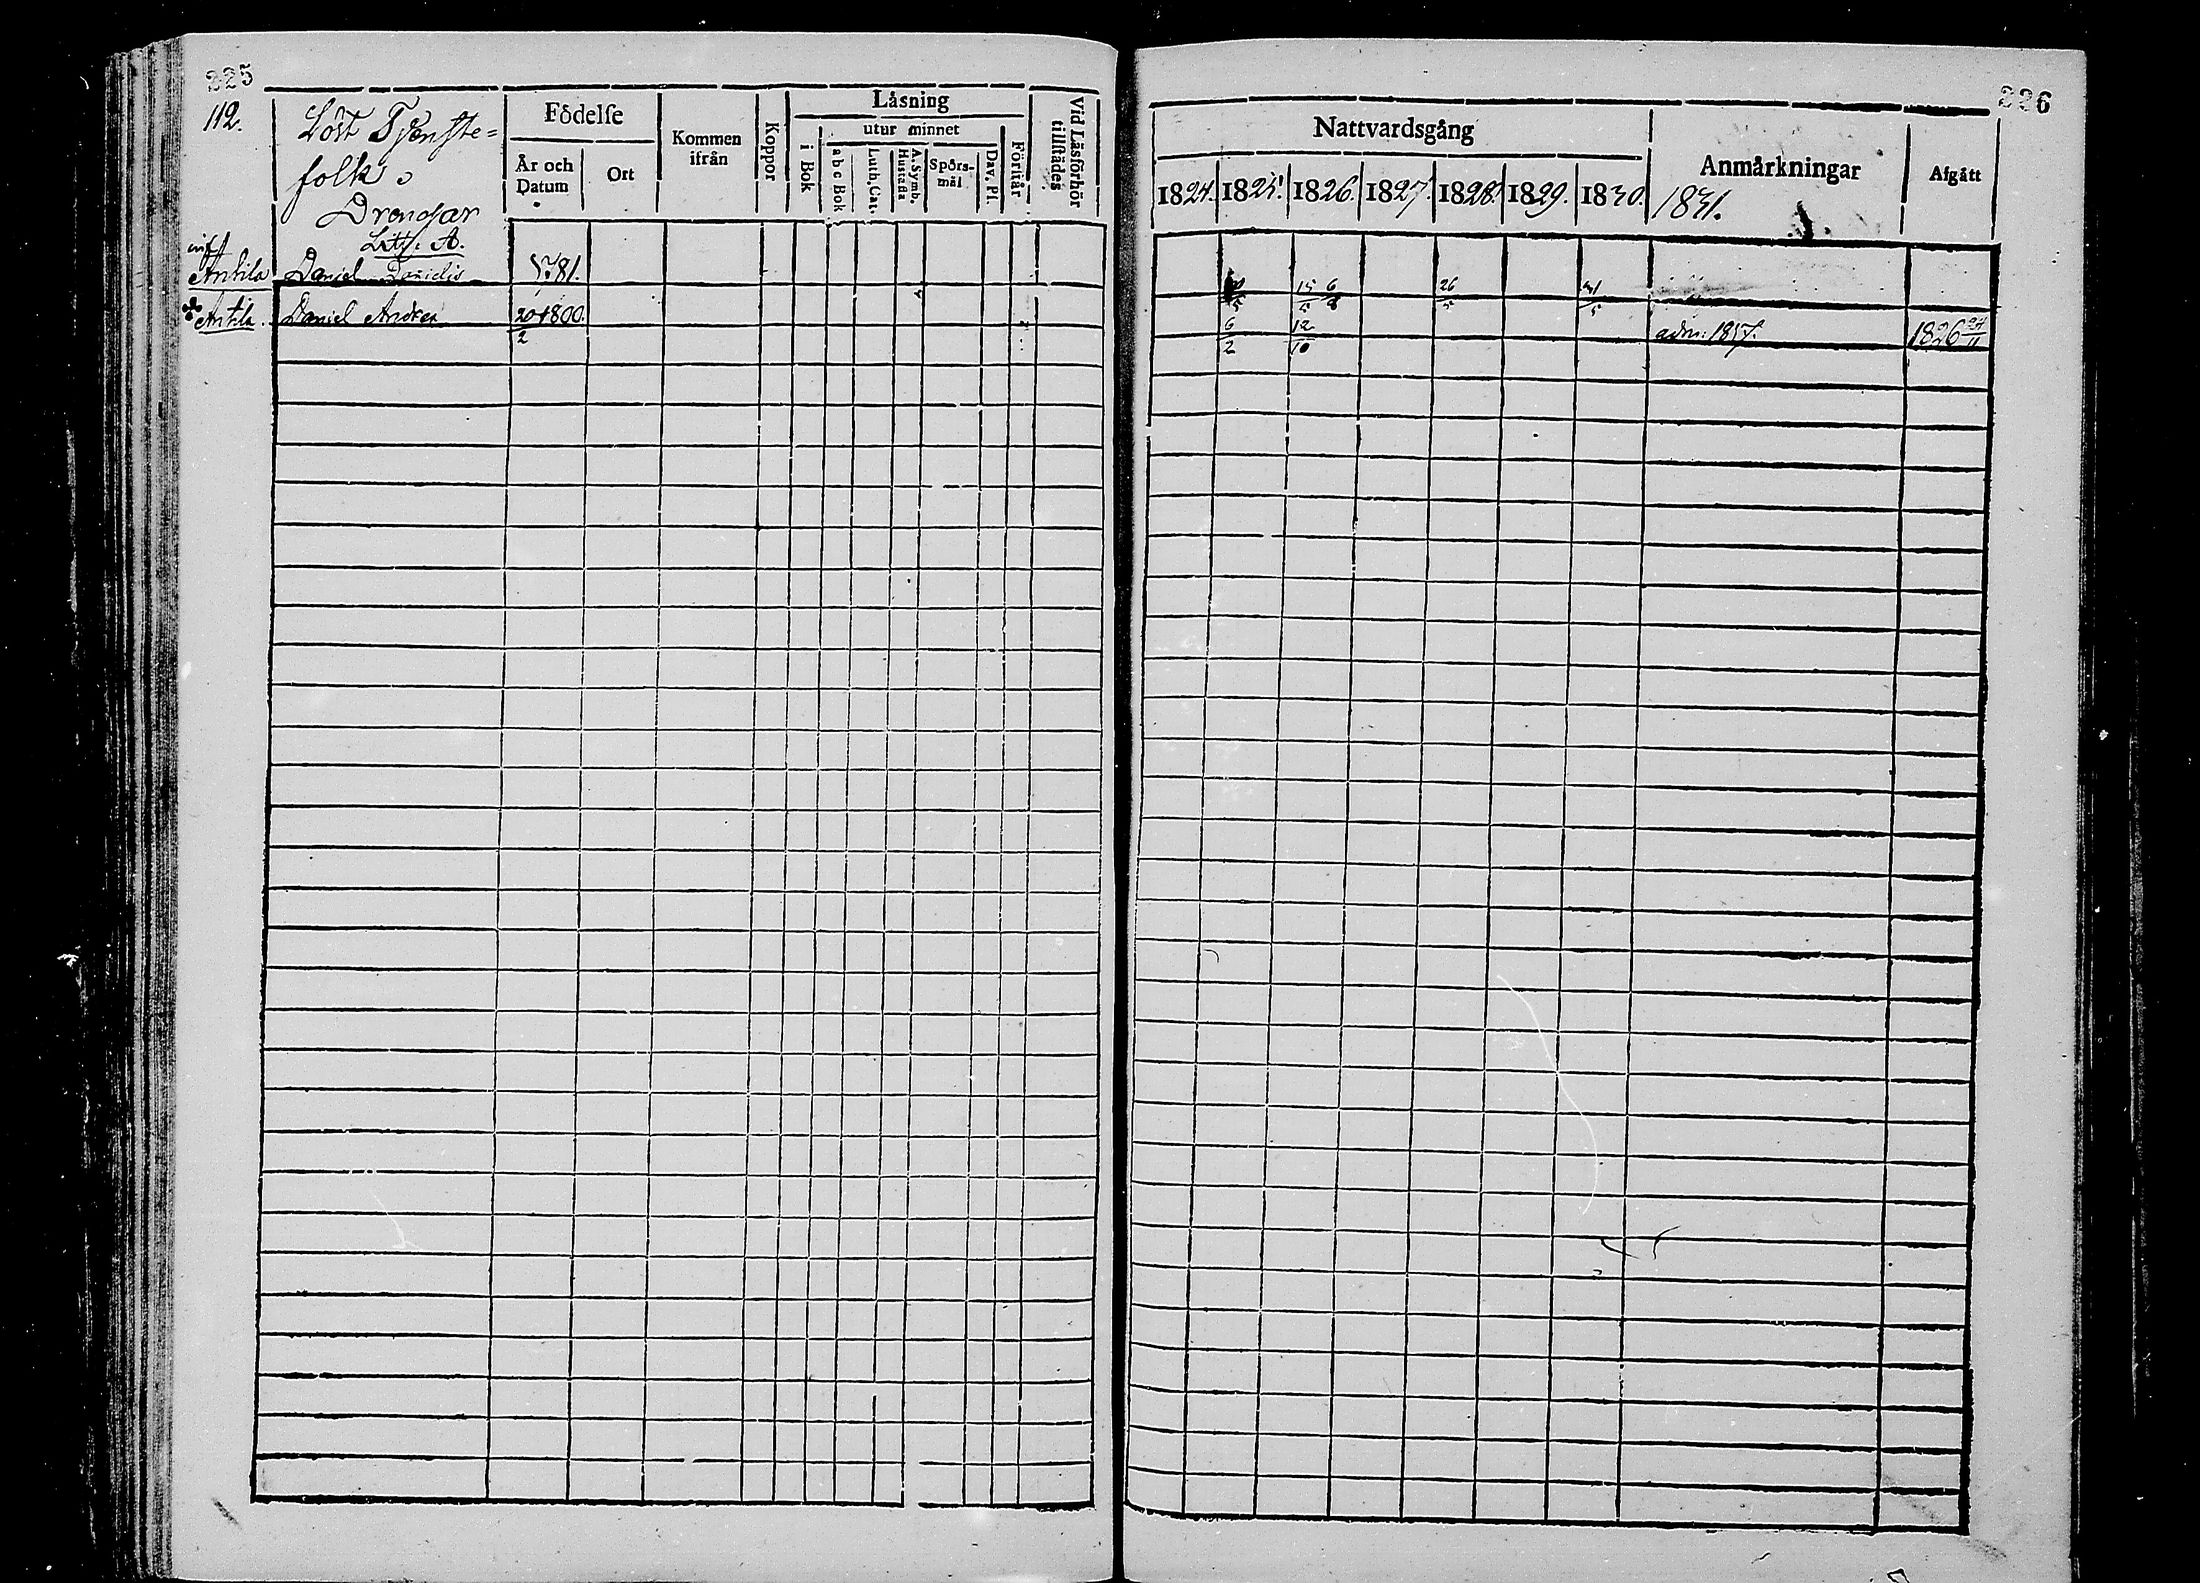 225
112.
Löst Tjenste=
folk.
Drengar
Litt. A.
Födelse
År och Datum
Ort
Kommen ifrån
Koppor
Låsning
i Bok
utur minnet
a b c Bok
Luth. Cat.
A. Symb. Hustafla
Spörs-mål
Dav. Pf.
Förstår
Vid Läsförhör tillstädes
inf
Antila Daniel Danielis 1781.
Antila. Daniel Andrea 20/2 1800.
226
Nattvardsgång
1824. 1825. 1826. 1827. 1828. 1829. 1830.
Anmärkningar
1831.
Afgått
15/5 6/8 26/5 31/5
6/2 12/10 adm: 1817. 1826 24/11